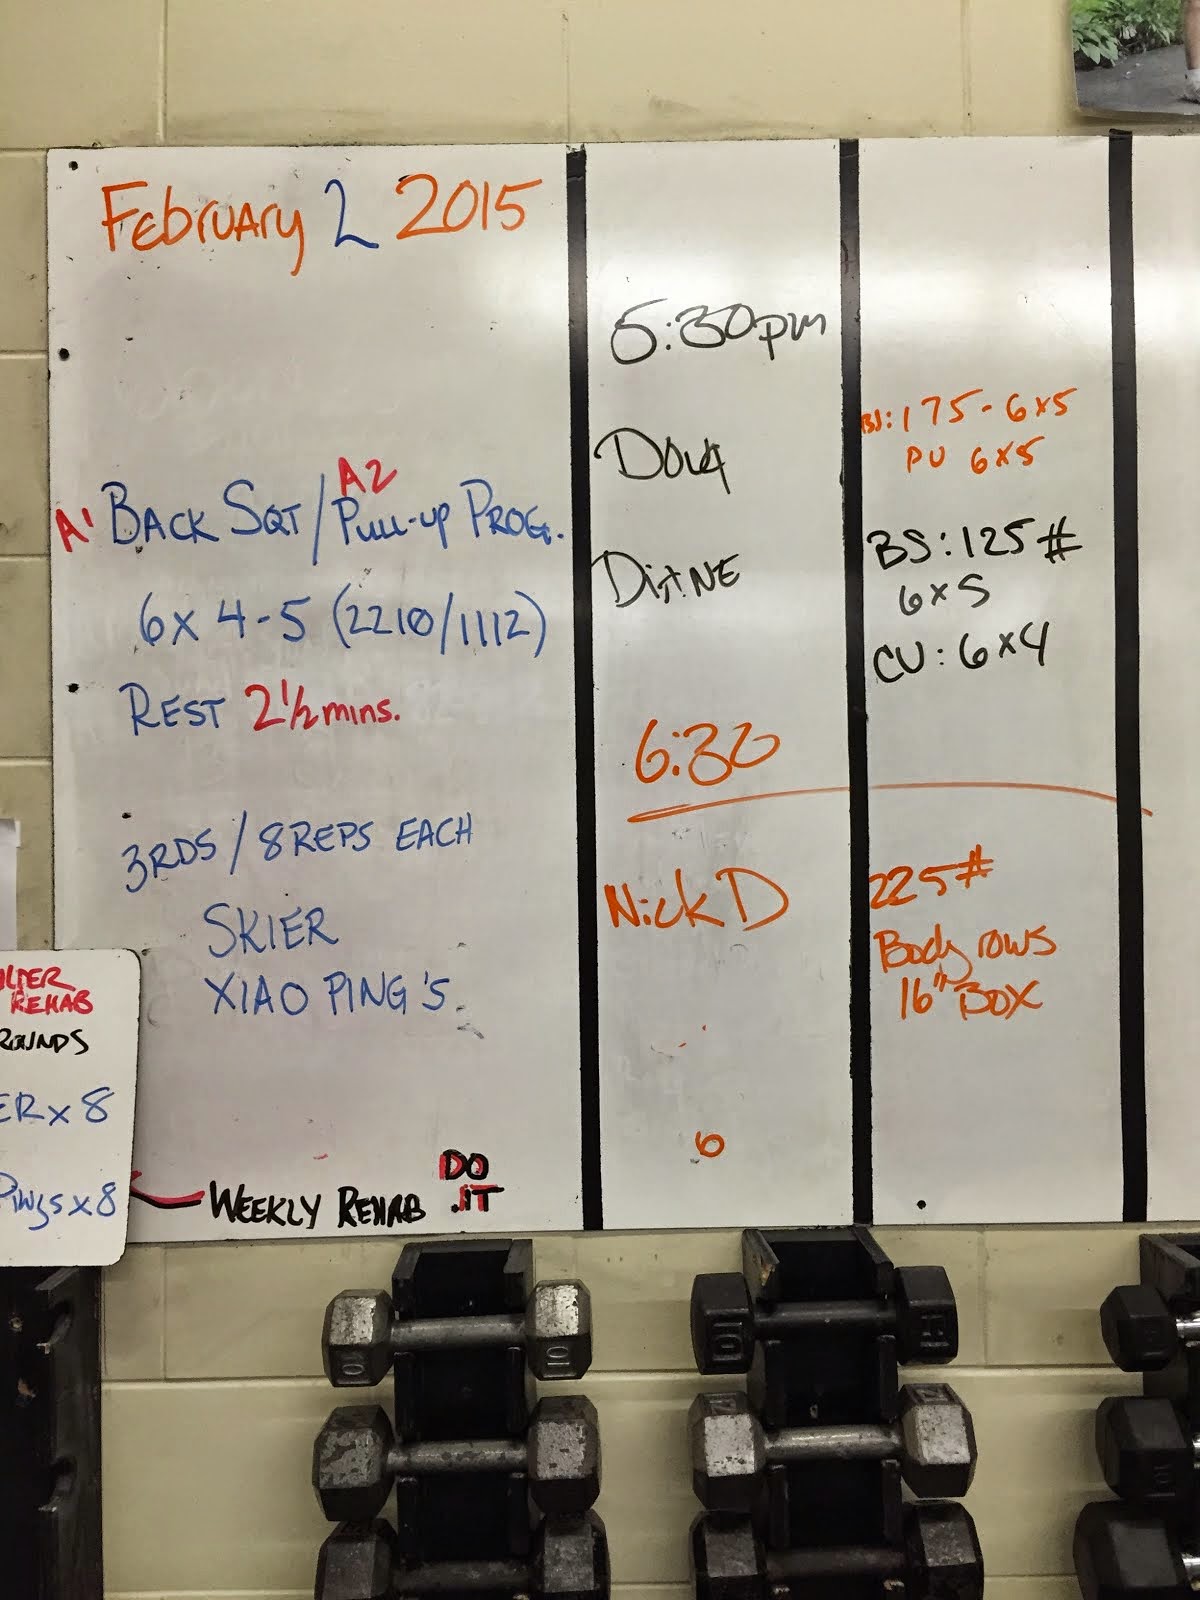 February 2 2015
A1 BACK SQT / A2 PULL-UP PROG.
6x 4-5 (2210/1112)
REST 2 1/2 mins.
3RDS / 8 REPS EACH
SKIER
XIAO PING'S
WEEKLY REHAB DO IT
REHAB
ROUNDS
ER x 8
Pings x 8
5:30pm
Doug
BS: 175 - 6x5
PU 6x5
DiANE
BS: 125 #
6x5
CU: 6x4
6:30
Nick D
225 #
Body rows
16" BOX
6
10
10
10